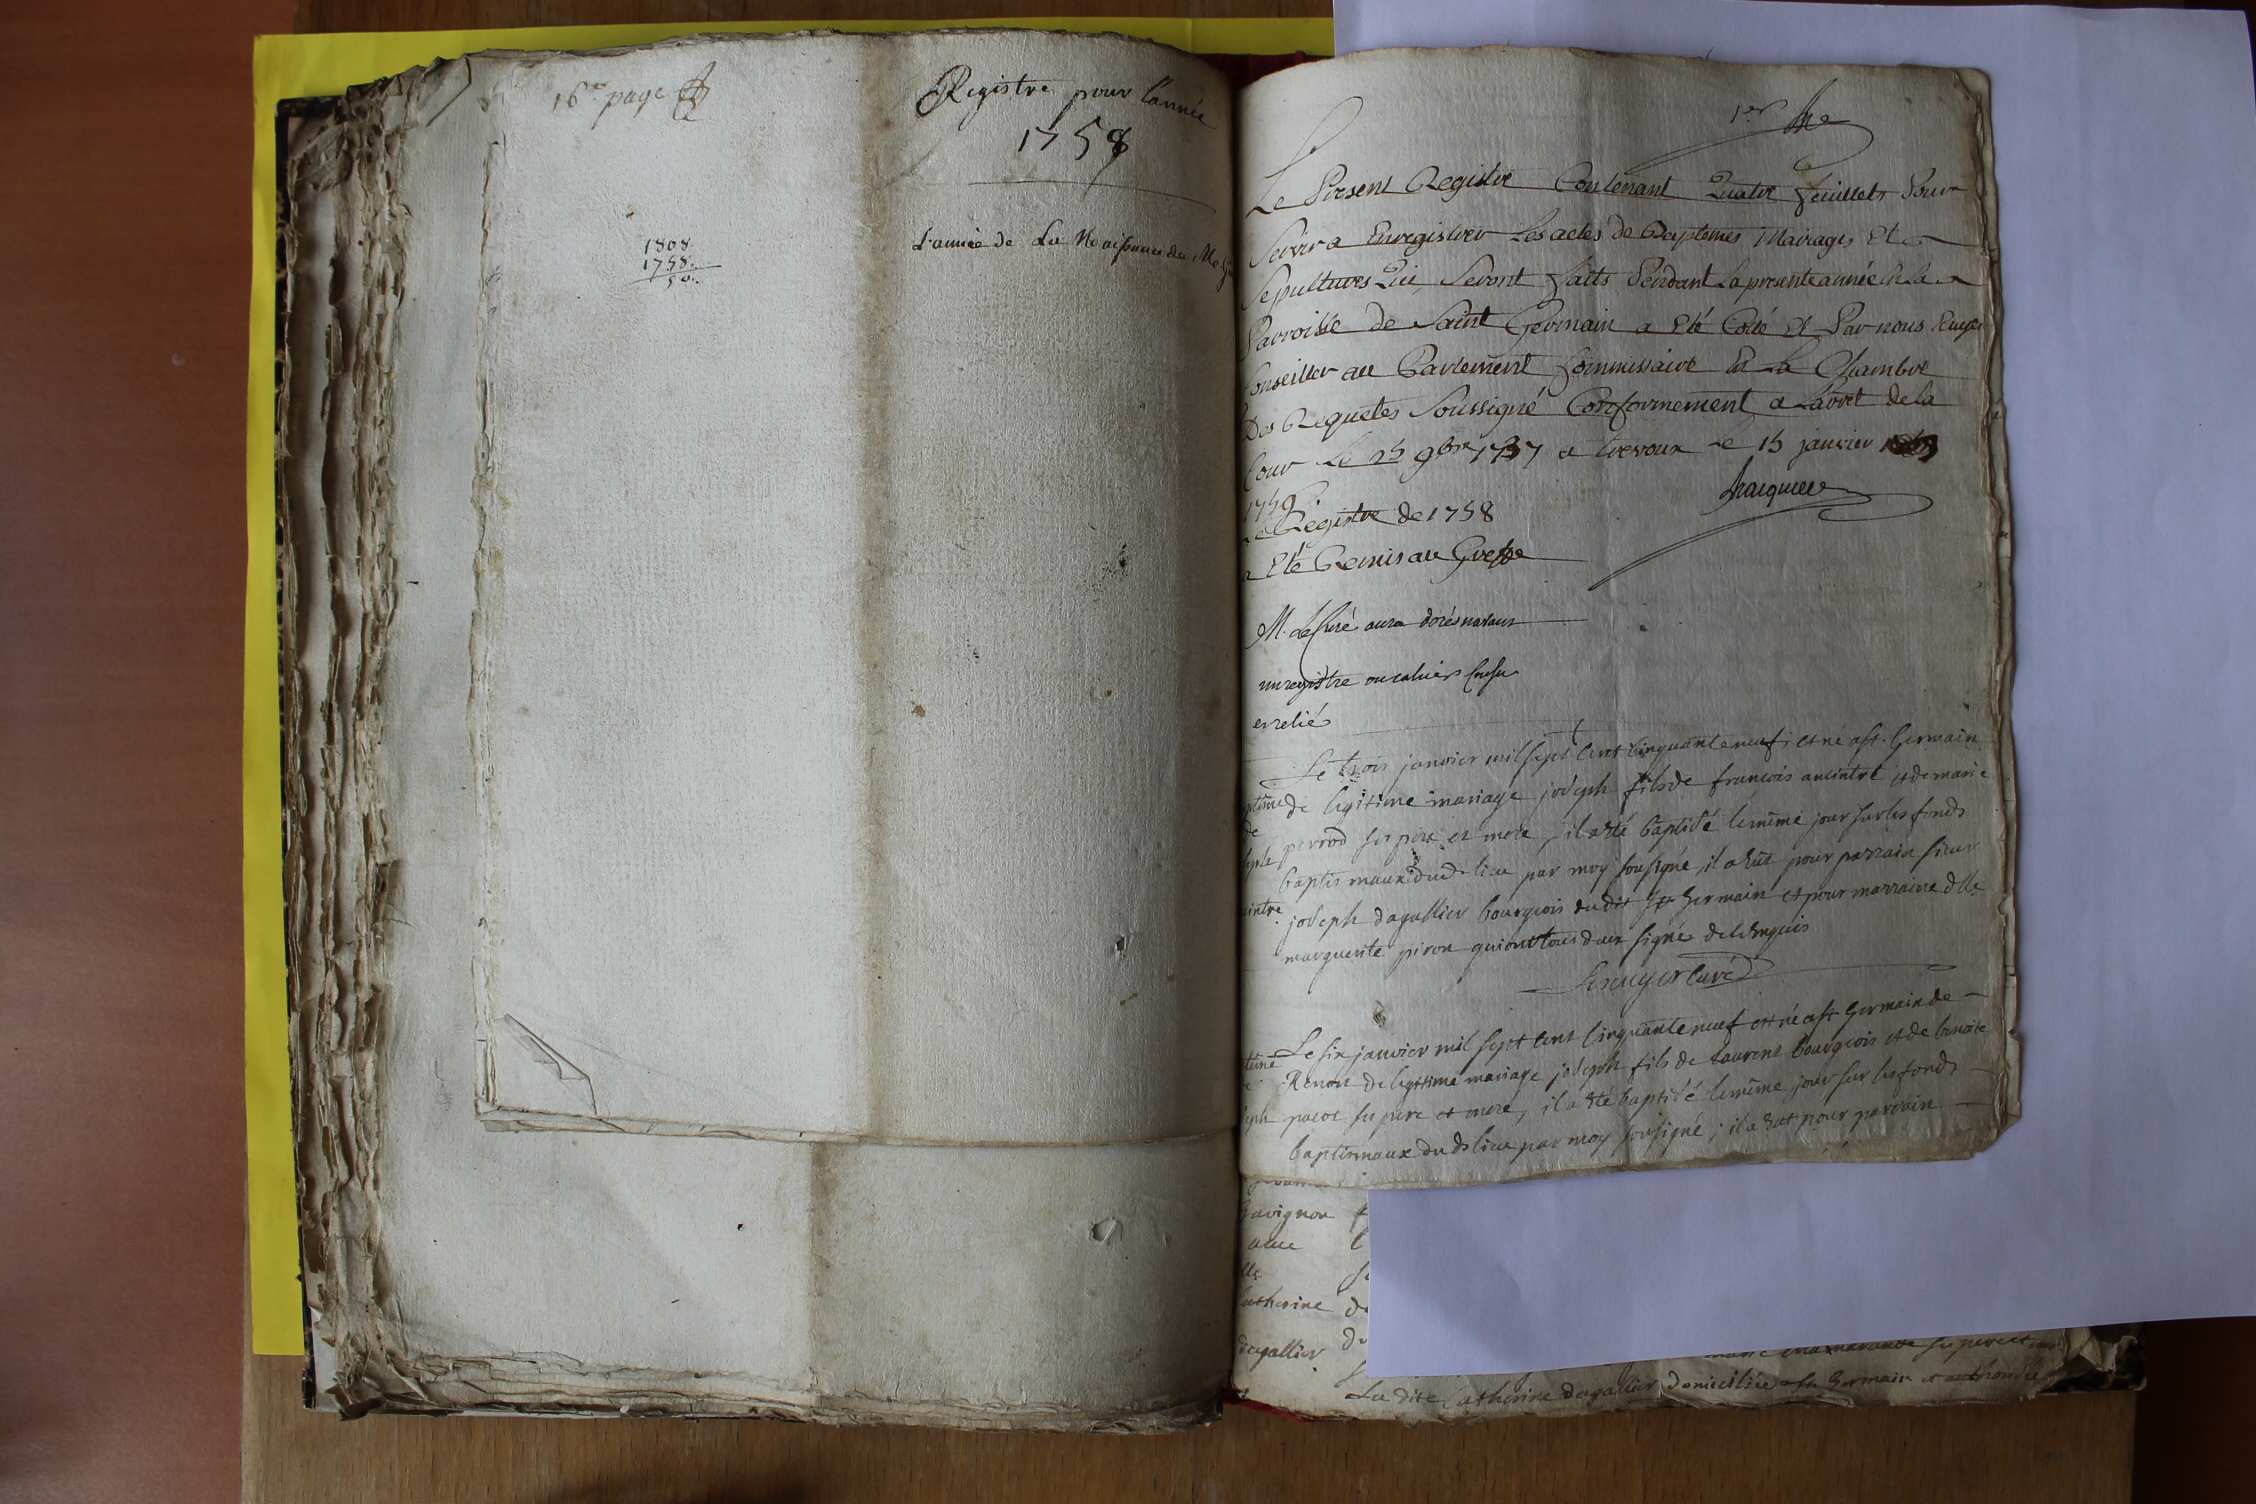 16.me page
Registre pour l'année
1758
1808.
1758.
50.
L'année de La Naissance de Me
1er
Le Present Registre Contenant Quatre feuillets Pour
Servir a Enregistrer Les actes de Baptemes Mairages Et
Sepultures Qui Seront faits Pendant La presente année En La
Parroisse de Saint Germain a Eté Coté Et Par nous
Conseiller au Parlement Commissaire En La Chambre
Des Requetes Soussigné Conformement a L'arret de la
Cour Le 25 9bre 1737 a trevoux Le 15 janvier
1759
Le Registre de 1758
a Eté Remis au Greffe
M. Le Curé aura dorésnavant
un registre ou cahiers Cousu
et relié
Le trois janvier mil sept cent cinquante neuf est né a st. Germain
de legitime mariage joseph fils de françois aucintre et de marie
perrod ses pere et mere, il a eté baptisé le meme jour sur les fonds
baptismaux dud. lieu par moy sousigné, il a eut pour parrain sieur
joseph dagallier bourgeois dudit st Germain et pour marraine dlle
marguerite piron qui ont tous deux signé de ce requis
curé
Le six janvier mil sept cent cinquante neuf est né a st Germain de
Renon de legitime mariage joseph fils de laurent bourgeois et de benoite
pacot ses pere et mere, il a eté baptisé le meme jour sur les fonds
baptismaux du d. lieu par moy sousigné; il a eut pour parrain
Gavignon
Catherine
dagallier
La dite Catherine dagallier domiciliée a st Germain et authorisée